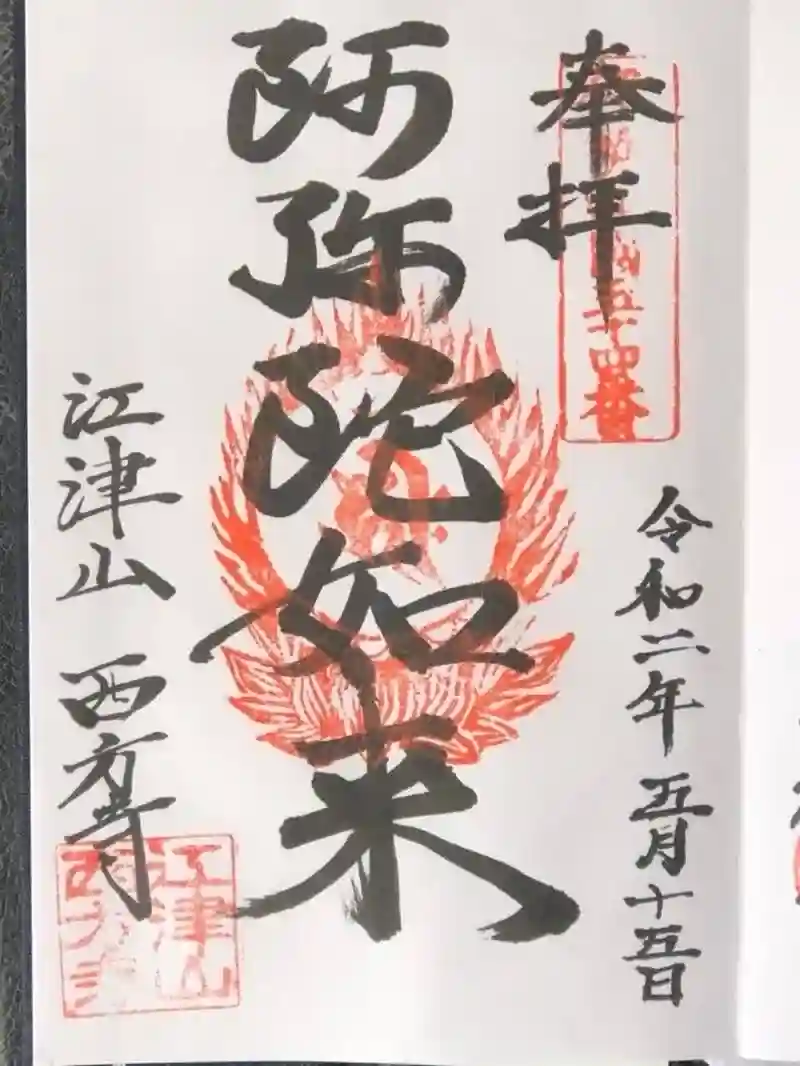 奉拝
五十四番
令和二年 五月十五日
阿弥陀如来
江津山 西方寺
江津山
西方寺